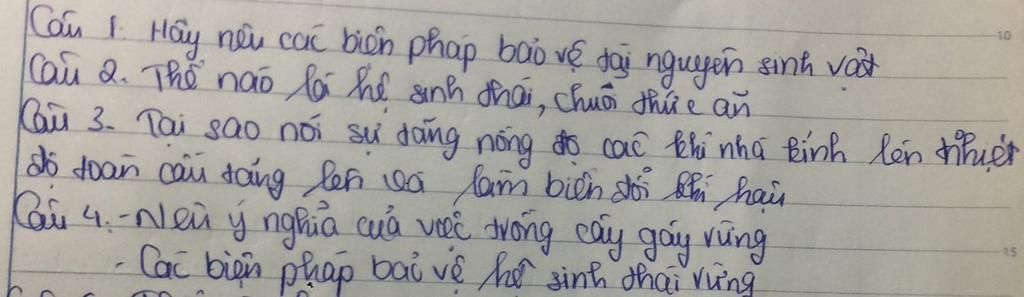 Câu 1. Hãy nêu các biện pháp bảo vệ tài nguyên sinh vật
Câu 2. Thế nào là hệ sinh thái, chuỗi thức ăn
Câu 3. Tại sao nói sự tăng nồng độ các khí nhà kính lên nhiệt
độ toàn cầu tăng lên và làm biến đổi khí hậu
Câu 4. - Nêu ý nghĩa của việc trồng cây gây rừng
- Các biện pháp bảo vệ hệ sinh thái rừng